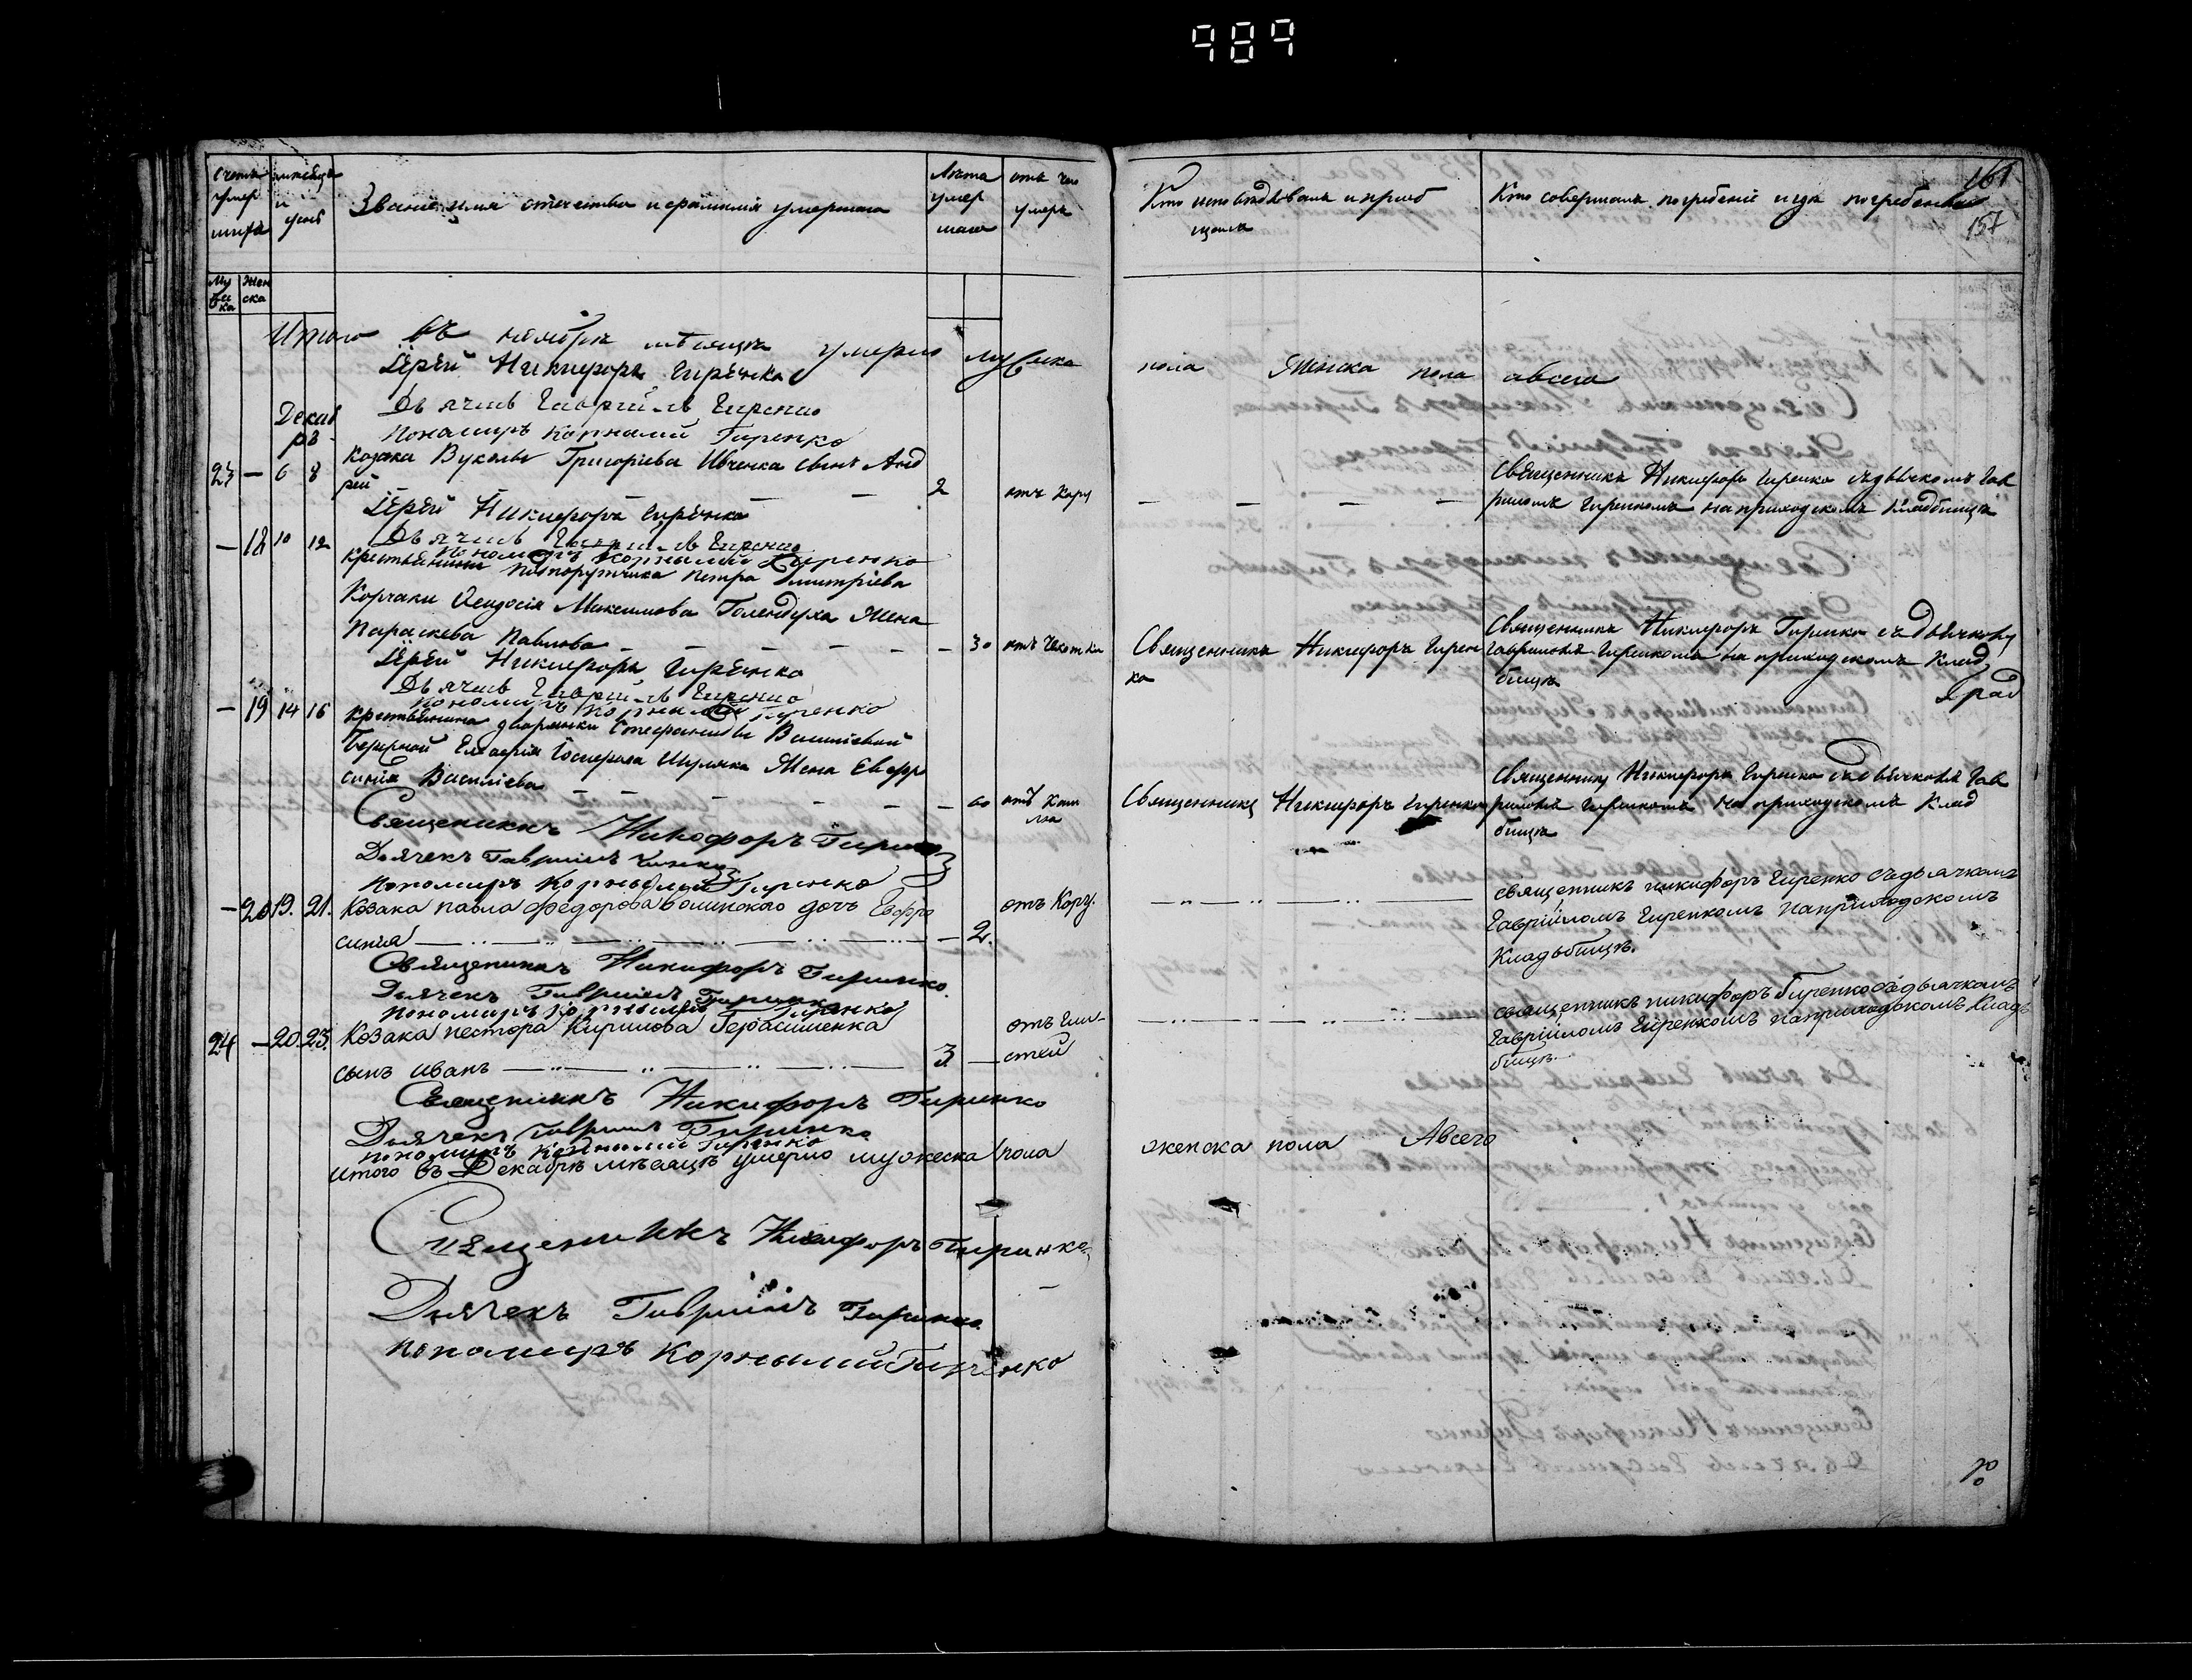 989
161
157
Счетъ умер шихъ
Му жеска
Жен ска
мѣсяцъ и день
Званіе имя отечество и фамилія умершаго
Лѣта умер шаго
отъ чего умеръ
Кто исповѣдывалъ и пріоб щалъ
Кто совершалъ погребеніе и гдѣ погребены
Итого въ ноябрѣ мѣсяцѣ умерло мужеска пола женска пола авсего
Іерей Никифоръ Гиренко
Дьячекъ Гавріилъ Гиренко
Декаб
рь
Пономаръ Корнилій Гиренко
23 — 6 8 Козака Вуколы Григоріева Ивченка сынъ Анд
рей — — — — 2 отъ Кору — — — —
Священникъ Никифоръ Гиренко съ дьячкомъ Гав
ріиломъ Гиренкомъ на приходскомъ кладбищѣ
Іерей Никифоръ Гиренко
Дьячекъ Гавріилъ Гиренко
Пономаръ Корнилій Гиренко
— 18 10 12 Крестьянина Подпорутчика Петра Дмитріева
Корчаки Ѳеодосія Максимова Голендуха жена
Параскева Павлова — — — — 30 отъ Чехотки
Священникъ Никифоръ Гирен
ко
Священникъ Никифоръ Гиренко съ дьячкомъ
Гавріиломъ Гиренкомъ на приходскомъ клад
бищѣ
Іерей Никифоръ Гиренко
Дьячекъ Гавріилъ Гиренко
Пономаръ Корнилій Гиренко
— 19 14 16 Крестьянина дворянки Стефаниды Василіевой
Елевферія Шуляка жена Евфро
синія Василіева — — — — 60 отъ Каш
ля
Священникъ Никифоръ Гиренко
Священникъ Никифоръ Гиренко съ дьячкомъ Гав
ріиломъ Гиренкомъ на приходскомъ клад
бищѣ
Священикъ Никофоръ Гиренко
Дьячекъ Гавріилъ Гиренко
Пономиръ Корнылій Гиренко
— 20 19. 21. Козака павла федорова волинского дочь Евфро
синія — — — 2. отъ Кору.
священникъ никифоръ Гиренко съ дьячкомъ
Гавріиломъ Гиренкомъ на приходскомъ
Кладьбищѣ.
Священикъ Никифоръ Гиренко.
Дьячекъ Гавріилъ Гиренко
пономиръ Корнылій Гиренко
24 — 20. 23. Козака нестора Кирилова Герасименка
сынъ иванъ — — — 3 — отъ Гли-
стей
священникъ никифоръ Гиренко съ дьячкомъ
Гавріиломъ Гиренкомъ на приходскомъ Кладь
бищѣ.
Священикъ Никифоръ Гиренко
Дьячекъ Гавріилъ Гиренко
пономиръ Корнылій Гиренко
Итого въ Декабрѣ мѣсяцѣ умерло мужеска пола женска пола Авсего
Священикъ Никифоръ Гиренко
Дьячекъ Гавріилъ Гиренко
Пономиръ Корнылий Гиренко